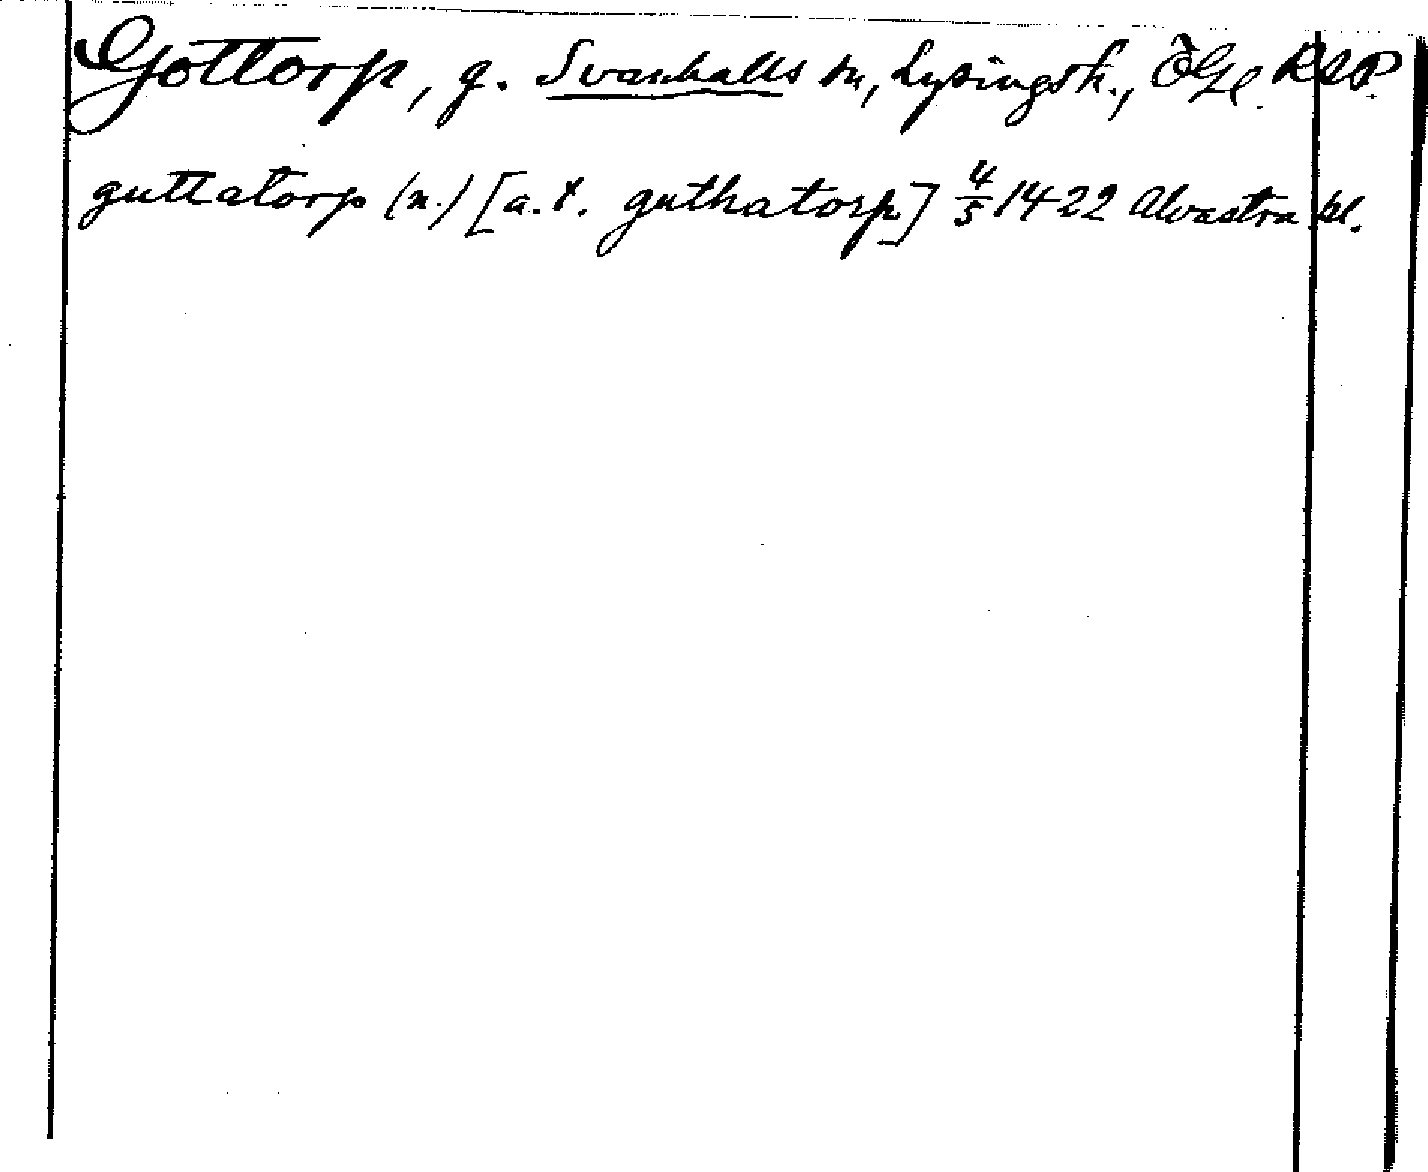 Gottorp, g. Svanhalls sn, Lysingsh., ÖGl. RAP.
guttatorp (n.) [a.t. guthatorp] 4/5 1422 Alvastra kl.